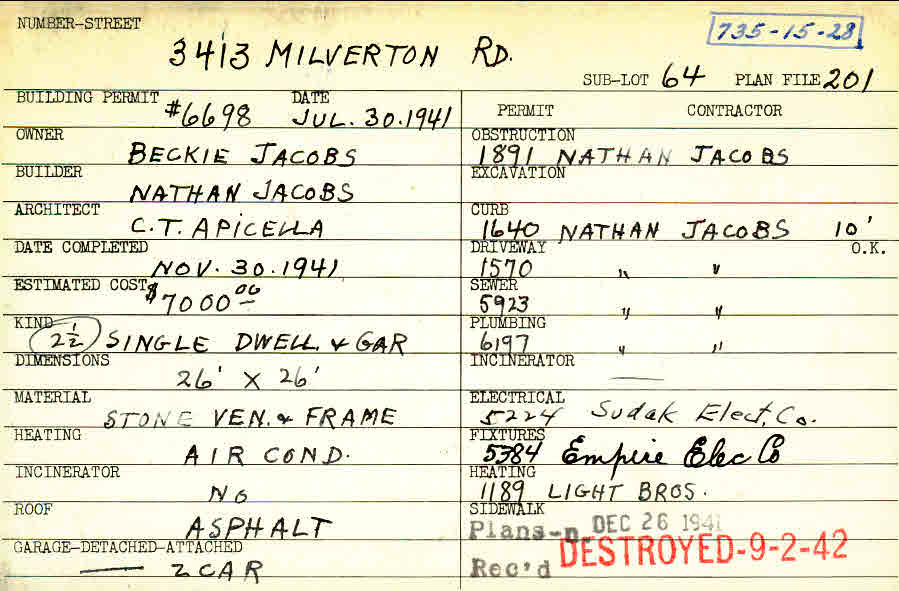 NUMBER-STREET
735-15-28
3413 MILVERTON RD.
SUB-LOT 64 PLAN FILE 201
BUILDING PERMIT #6698 DATE JUL. 30.1941
OWNER
BECKIE JACOBS
BUILDER
NATHAN JACOBS
ARCHITECT
C.T. APICELLA
DATE COMPLETED
NOV. 30.1941
ESTIMATED COST $7000 00
KIND
2½ SINGLE DWELL. & GAR
DIMENSIONS
26' X 26'
MATERIAL
STONE VEN. & FRAME
HEATING
AIR COND.
INCINERATOR
NO
ROOF
ASPHALT
GARAGE-DETACHED-ATTACHED
2 CAR
PERMIT CONTRACTOR
OBSTRUCTION
1891 NATHAN JACOBS
EXCAVATION
CURB
1640 NATHAN JACOBS 10'
DRIVEWAY O.K.
1570 " "
SEWER
5923 " "
PLUMBING
6197 " "
INCINERATOR
ELECTRICAL
5224 Sudak Elect. Co.
FIXTURES
5384 Empire Elec Co
HEATING
1189 LIGHT BROS.
SIDEWALK
Plans- DEC 26 1941
DESTROYED-9-2-42
Rec'd